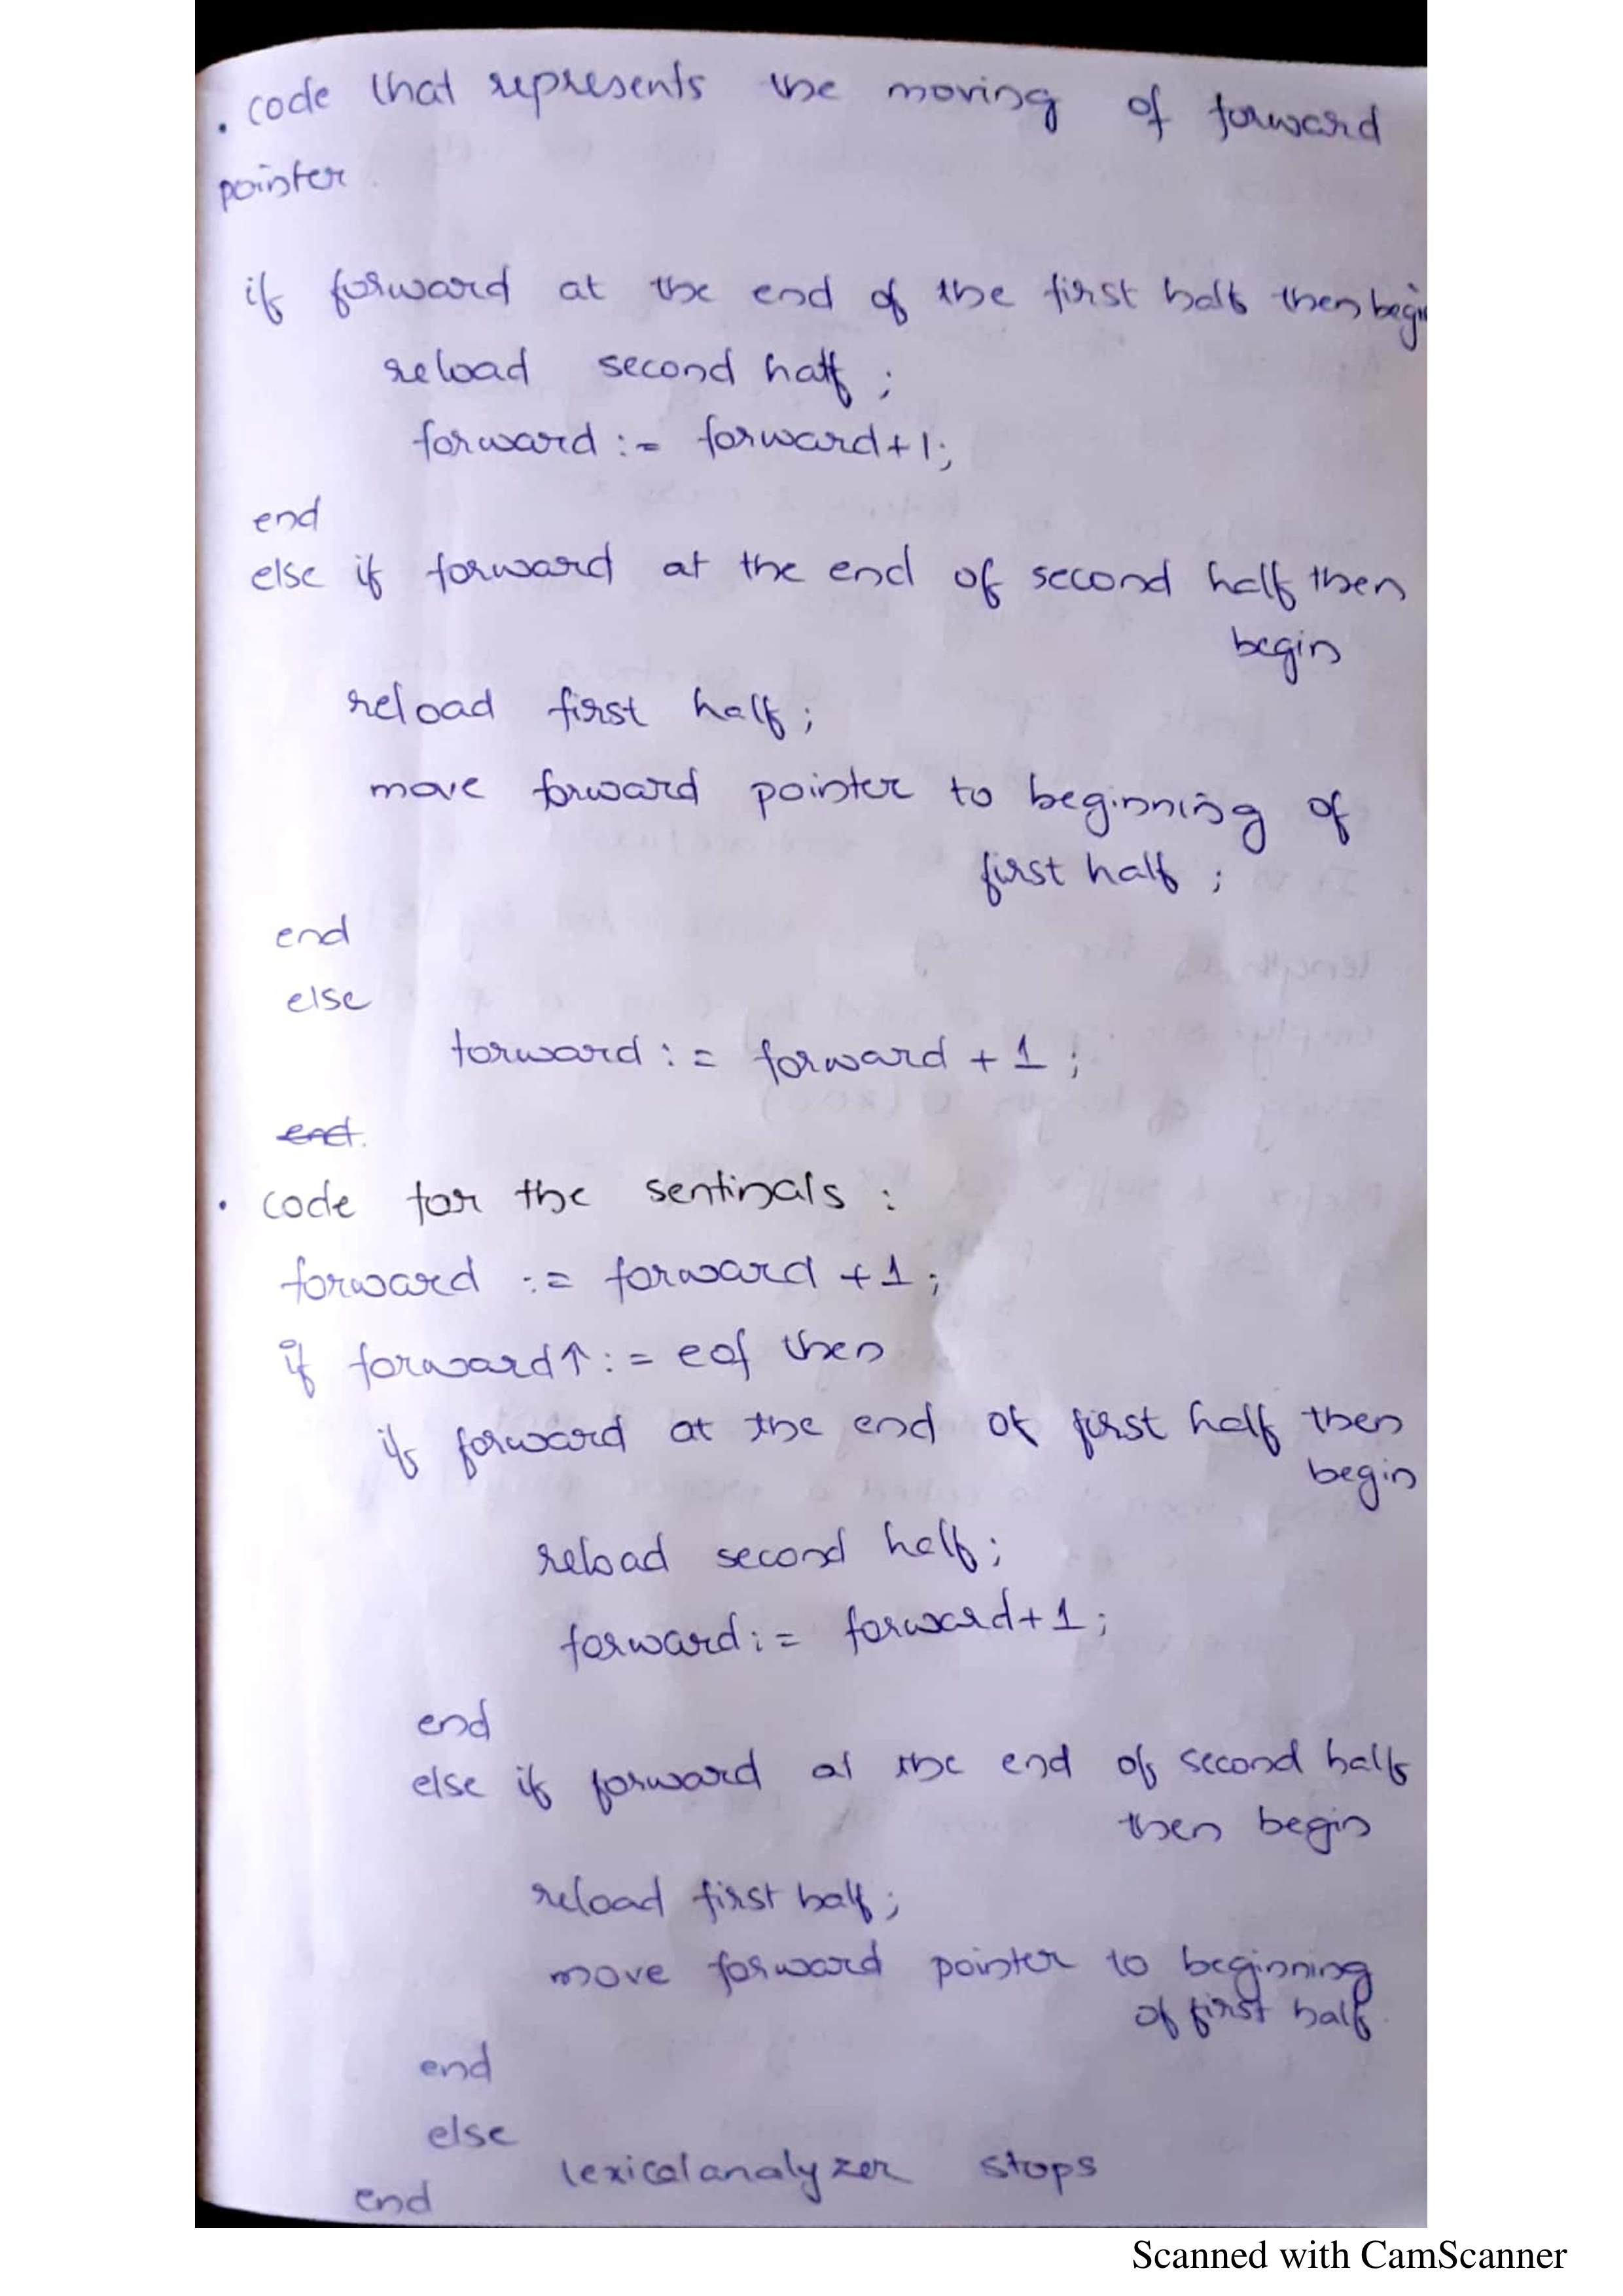 . code that represents the moving of forward
pointer
if forward at the end of the first half then begin
reload second half ;
forward := forward+1;
end
else if forward at the end of second half then
begin
reload first half ;
move forward pointer to beginning of
first half ;
end
else
forward := forward + 1 ;
end.
. code for the sentinals :
forward := forward +1 ;
if forward↑ := eof then
if forward at the end of first half then
begin
reload second half ;
forward := forward+1 ;
end
else if forward at the end of second half
then begin
reload first half ;
move forward pointer to beginning
of first half.
end
else
lexicalanalyzer stops
end
Scanned with CamScanner